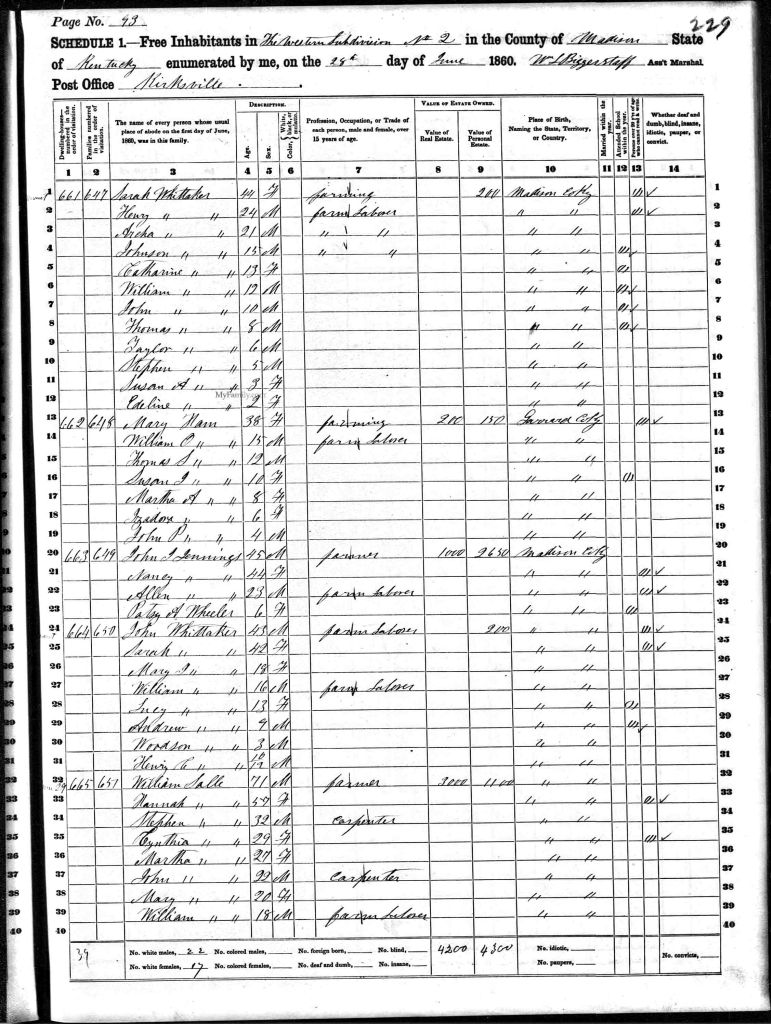 Page No. 93
229
SCHEDULE 1.—Free Inhabitants in The Western Subdivision No 2 in the County of Madison State
of Kentucky enumerated by me, on the 28th day of June 1860. Ass't Marshal.
Post Office Kirksville
DESCRIPTION. VALUE OF ESTATE OWNED.
Dwelling-houses—numbered in the order of visitation. Families numbered in the order of visitation. The name of every person whose usual place of abode on the first day of June, 1860, was in this family. Age. Sex. Color, White, black, or mulatto. Profession, Occupation, or Trade of each person, male and female, over 15 years of age. Value of Real Estate. Value of Personal Estate. Place of Birth, Naming the State, Territory, or Country. Married within the year. Attended School within the year. Persons over 20 y'rs of age who cannot read & write. Whether deaf and dumb, blind, insane, idiotic, pauper, or convict.
1 2 3 4 5 6 7 8 9 10 11 12 13 14
1 661 647 Sarah Whittaker 44 F farming 200 Madison Co Ky 1
2 Henry " " 24 M farm Laborer " " 2
3 " " 21 M " " " " 3
4 Johnson " " 15 M " " " " 4
5 Catharine " " 13 F " " 5
6 William " " 12 M " " 6
7 John " " 10 M " " 7
8 Thomas " " 8 M " " 8
9 Taylor " " 6 M " " 9
10 Stephen " " 5 M " " 10
11 Susan A " " 3 F " " 11
12 Edeline " " 2 F " " 12
13 662 648 Mary Ham 38 F farming 200 150 Garrard Co Ky 13
14 William P " " 15 M farm Laborer " " 14
15 Thomas S " " 12 M " " 15
16 Susan J " " 10 F " " 16
17 Martha A " " 8 F " " 17
18 Izadora " " 6 F " " 18
19 John P " " 4 M " " 19
20 663 649 John J Jennings 45 M farmer 1000 2650 Madison Co Ky 20
21 Nancy " " 44 F " " 21
22 Allen " " 23 M farm Laborer " " 22
23 Patsy A Wheeler 6 F " " 23
24 664 650 John Whittaker 43 M farm Laborer 200 " " 24
25 Sarah " " 42 F " " 25
26 Mary J " " 18 F " " 26
27 William " " 16 M farm Laborer " " 27
28 Lucy " " 13 F " " 28
29 Andrew " " 9 M " " 29
30 Woodson " " 3 M " " 30
31 Henry C " " 10/12 M " " 31
32 665 651 William Salle 71 M farmer 3000 1100 " " 32
33 Hannah " " 57 F " " 33
34 Stephen " " 32 M carpenter " " 34
35 Cynthia " " 29 F " " 35
36 Martha " " 27 F " " 36
37 John " " 22 M carpenter " " 37
38 Mary " " 20 F " " 38
39 William " " 18 M farm Laborer " " 39
40 40
MyFamily
39 No. white males, 22 No. colored males, No. foreign born, No. blind, 4200 4300 No. idiotic, No. convicts,
No. white females, 17 No. colored females, No. deaf and dumb, No. insane, No. paupers,